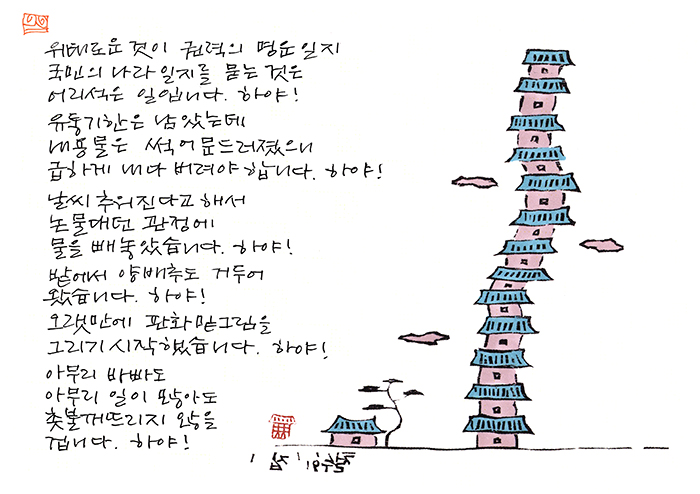 위태로운 것이 권력의 명운일지
국민의 나라일지를 묻는 것은
어리석은 일입니다. 하야!
유통기한은 남았는데
내용물은 썩어 문드러졌으니
급하게 내다 버려야 합니다. 하야!
날씨 추워진다고 해서
논물대던 관정에
물을 빼놓았습니다. 하야!
밭에서 양배추도 거두어
왔습니다. 하야!
오랫만에 판화 밑그림을
그리기 시작했습니다. 하야!
아무리 바빠도
아무리 일이 많아도
촛불 꺼뜨리지 않을
겁니다. 하야!